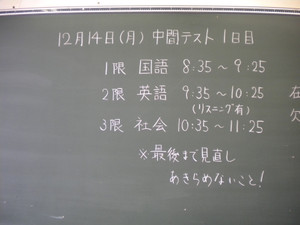 12月14日(月) 中間テスト 1日目
1限 国語 8:35～9:25
2限 英語 9:35～10:25
(リスニング有)
3限 社会 10:35～11:25
※最後まで見直し
あきらめないこと!
在
欠